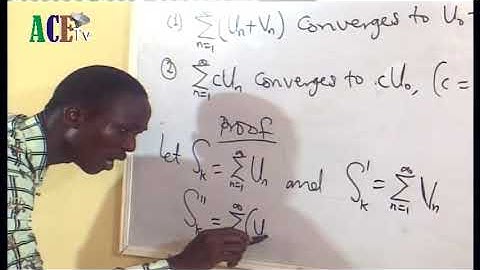 ACE TV
(1) ∞ ∑ n=1 (Un + Vn) Converges to U0 +
② ∞ ∑ n=1 cUn converges to cU0, (c =
Proof
Let Sk = ∞ ∑ n=1 Un and S'k = ∞ ∑ n=1 Vn
S''k = ∞ ∑ n=1 (U